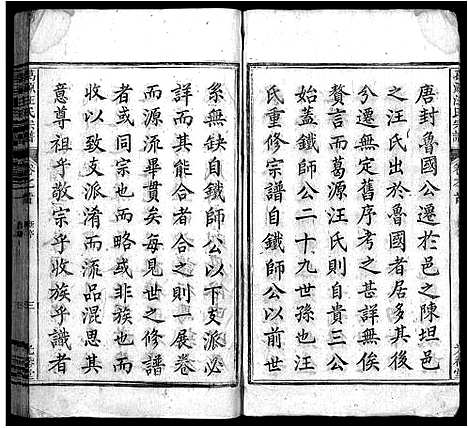 唐封魯國公遷於邑之陳坦邑
之汪氏於魯國者居多其後
分遷無定舊序考之甚詳無俟
贅言而葛源汪氏則自貴三公
始蓋鐵師公二十九世孫也汪
氏重修宗譜自鐵師公以前世
系無缺自鐵師公以下支派必
詳而合之則一展卷
而源流畢貫矣每見世之修譜
者或同宗也而略或非族也而
收以致支派淆而流品混思其
意尊祖乎敬宗乎收族乎識者
葛源汪氏宗譜
卷之首
三